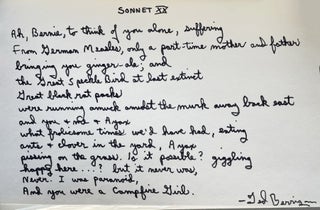 SONNET XX
Ah, Bernie, to think of you alone, suffering
From German Measles, only a part-time mother and father
bringing you ginger-ale; and
the Great Speckle Bird at last extinct
Great black rat packs
were running amuck amidst the murk away back east
and you + not + Ayax
what frolicsome times we'd have had, eating
ants + clover in the yard, Ayax
pissing on the grass. Is it possible? giggling
happy here...? but it never was,
Never. I was paranoid,
And you were a Campfire Girl.
—Ted Berrigan